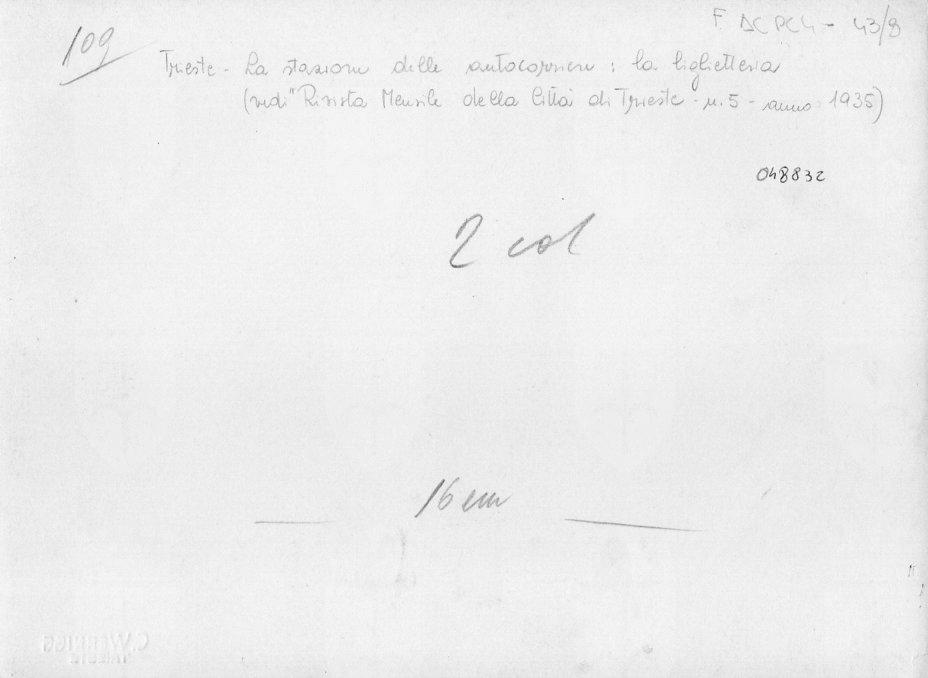 109
F DC PC4 - 43/8
Trieste - La stazione delle autocorriere : la biglietteria
(vedi "Rivista Mensile della Città di Trieste - n. 5 - anno 1935)
048832
2 col
16 cm
C. WERNIGG
TRIESTE